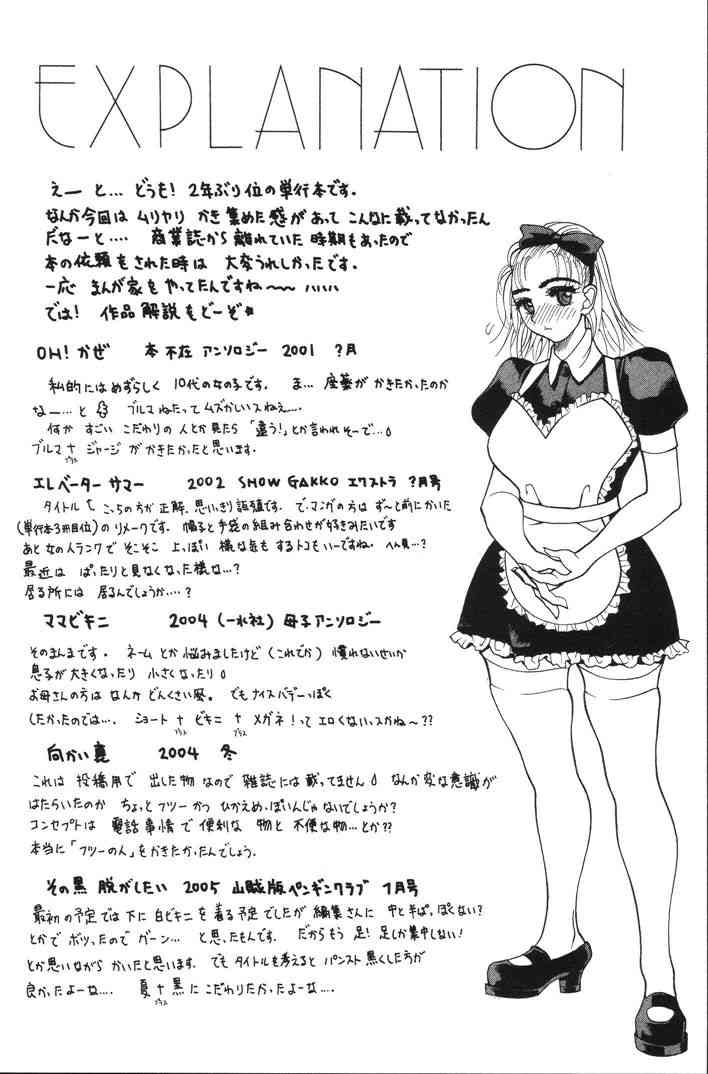 EXPLANATION
えーと… どうも! 2年ぶり位の単行本です.
なんか今回は ムリヤリ かき集めた感があって こんなに載ってなかったん
だなーと…. 商業誌から離れていた時期もあったので
本の依頼をされた時は 大変うれしかったです.
一応 まんが家をやってたんですね〜〜 ハハハ
では! 作品解説もどーぞ
OH! かぜ 本不在 アンソロジー 2001 ?月
私的にはめずらしく 10代の女の子です. ま… 座薬がかきたかったのか
なー…. と ブルマねたってムズかしいスねぇ….
何か すごい こだわりの人とか見たら「違う!」とか言われそーで…
ブルマ+ジャージがかきたかったと思います.
エレベーター サマー 2002 SNOW GAKKO エクストラ ?月号
タイトル こっちの方が正解. 思いっきり誤植です. で. マンガの方は ず〜と前にかいた
(単行本3冊目位)のリメークです. 帽子と手袋の組み合わせが好きみたいです
あと女の人ランクで そこそこ 上っぽい 様な気も するトコもいーですね.
最近は ぱったりと見なくなった様な…?
居る所には 居るんでしょうか….?
ママビキニ 2004 (一水社) 母子アンソロジー
そのまんまです. ネームとか悩みましたけど(これでか) 慣れないせいか
息子が大きくなったり 小さくなったり
お母さんの方は なんか どんくさい風. でもナイスバデーっぽく
したかったのでは…. ショート+ビキニ+メガネ!ってエロくないっスかね〜??
プラス プラス
向かい裏 2004 冬
これは 投稿用で 出した物なので 雑誌には載ってません なんか変な意識が
はたらいたのか ちょっとフツー かつ ひかえめっぽいんじゃないでしょうか?
コンセプトは 電話事情で便利な 物と不便な物…とか??
本当に「フツーの人」をかきたかったんでしょう.
その黒 脱がしたい 2005 山賊版ペンギンクラブ 7月号
最初の予定では下に白ビキニを着る予定でしたが編集さんに 中と半ぱっぽくない?
とかでボツったのでグーン… と思ったもんです. だからもう 足! 足しか集中しない!
とか思いながら かいたと思います. でもタイトルも考えるとパンスト黒くした方が
良かったよーな…. 夏+黒にこだわりたかったよーな….
プラス